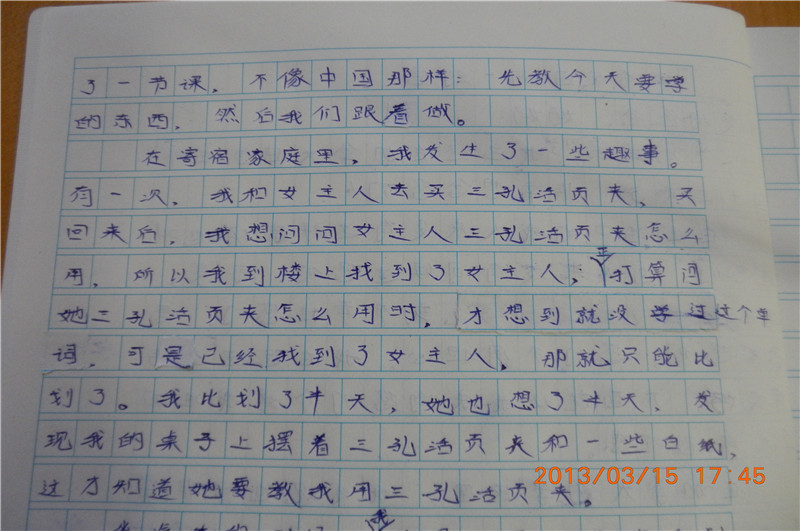 了一节课，不像中国那样：先教今天要学
的东西，然后我们跟着做。
在寄宿家庭里，我发生了一些趣事。
有一次，我和女主人去买三孔活页夹，买
回来后，我想问问女主人三孔活页夹怎么
用，所以我到楼上找到了女主人，正打算问
她三孔活页夹怎么用时，才想到就没学过这个单
词，可是已经找到了女主人，那就只能比
划了。我比划了半天，她也想了半天，发
现我的桌子上摆着三孔活页夹和一些白纸，
这才知道她要教我用三孔活页夹。
2013/03/15 17:45